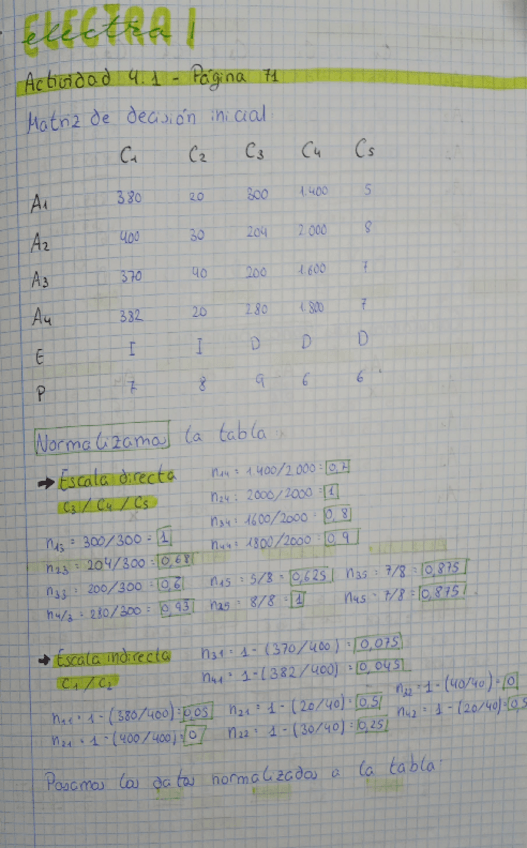 ELECTRA I
electra I
Actividad 4.1 - Página 71
Matriz de decisión inicial
C1 C2 C3 C4 C5
A1 380 20 300 1.400 5
A2 400 30 204 2.000 8
A3 370 40 200 1.600 7
A4 382 20 280 1.800 7
E I I D D D
P 7 8 9 6 6
Normalizamos la tabla
→ Escala directa
C3 / C4 / C5
n14 = 1400/2000 = 0,7
n24 = 2000/2000 = 1
n34 = 1600/2000 = 0,8
n44 = 1800/2000 = 0,9
n13 = 300/300 = 1
n23 = 204/300 = 0,68
n33 = 200/300 = 0,6
n4/3 = 280/300 = 0,93
n15 = 5/8 = 0,625 n35 = 7/8 = 0,875
n25 = 8/8 = 1 n45 = 7/8 = 0,875
→ Escala indirecta
C1 / C2
n31 = 1 - (370/400) = 0,075
n41 = 1 - (382/400) = 0,045
n11 = 1 - (380/400) = 0,05 n21 = 1 - (20/40) = 0,5 n32 = 1 - (40/40) = 0
n21 = 1 - (400/400) = 0 n22 = 1 - (30/40) = 0,25 n42 = 1 - (20/40) = 0,5
Pasamos los datos normalizados a la tabla.